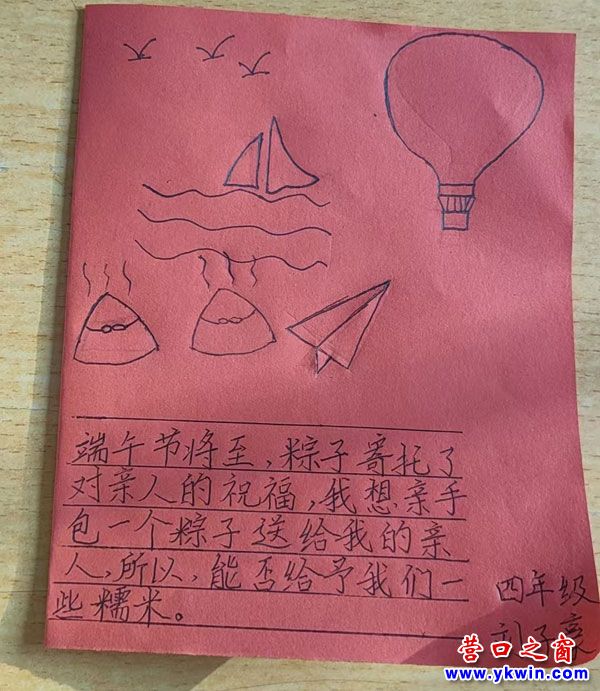 端午节将至，粽子寄托了
对亲人的祝福，我想亲手
包一个粽子送给我的亲
人，所以，能否给予我们一
些糯米。
四年级
营口之窗
www.ykwin.com